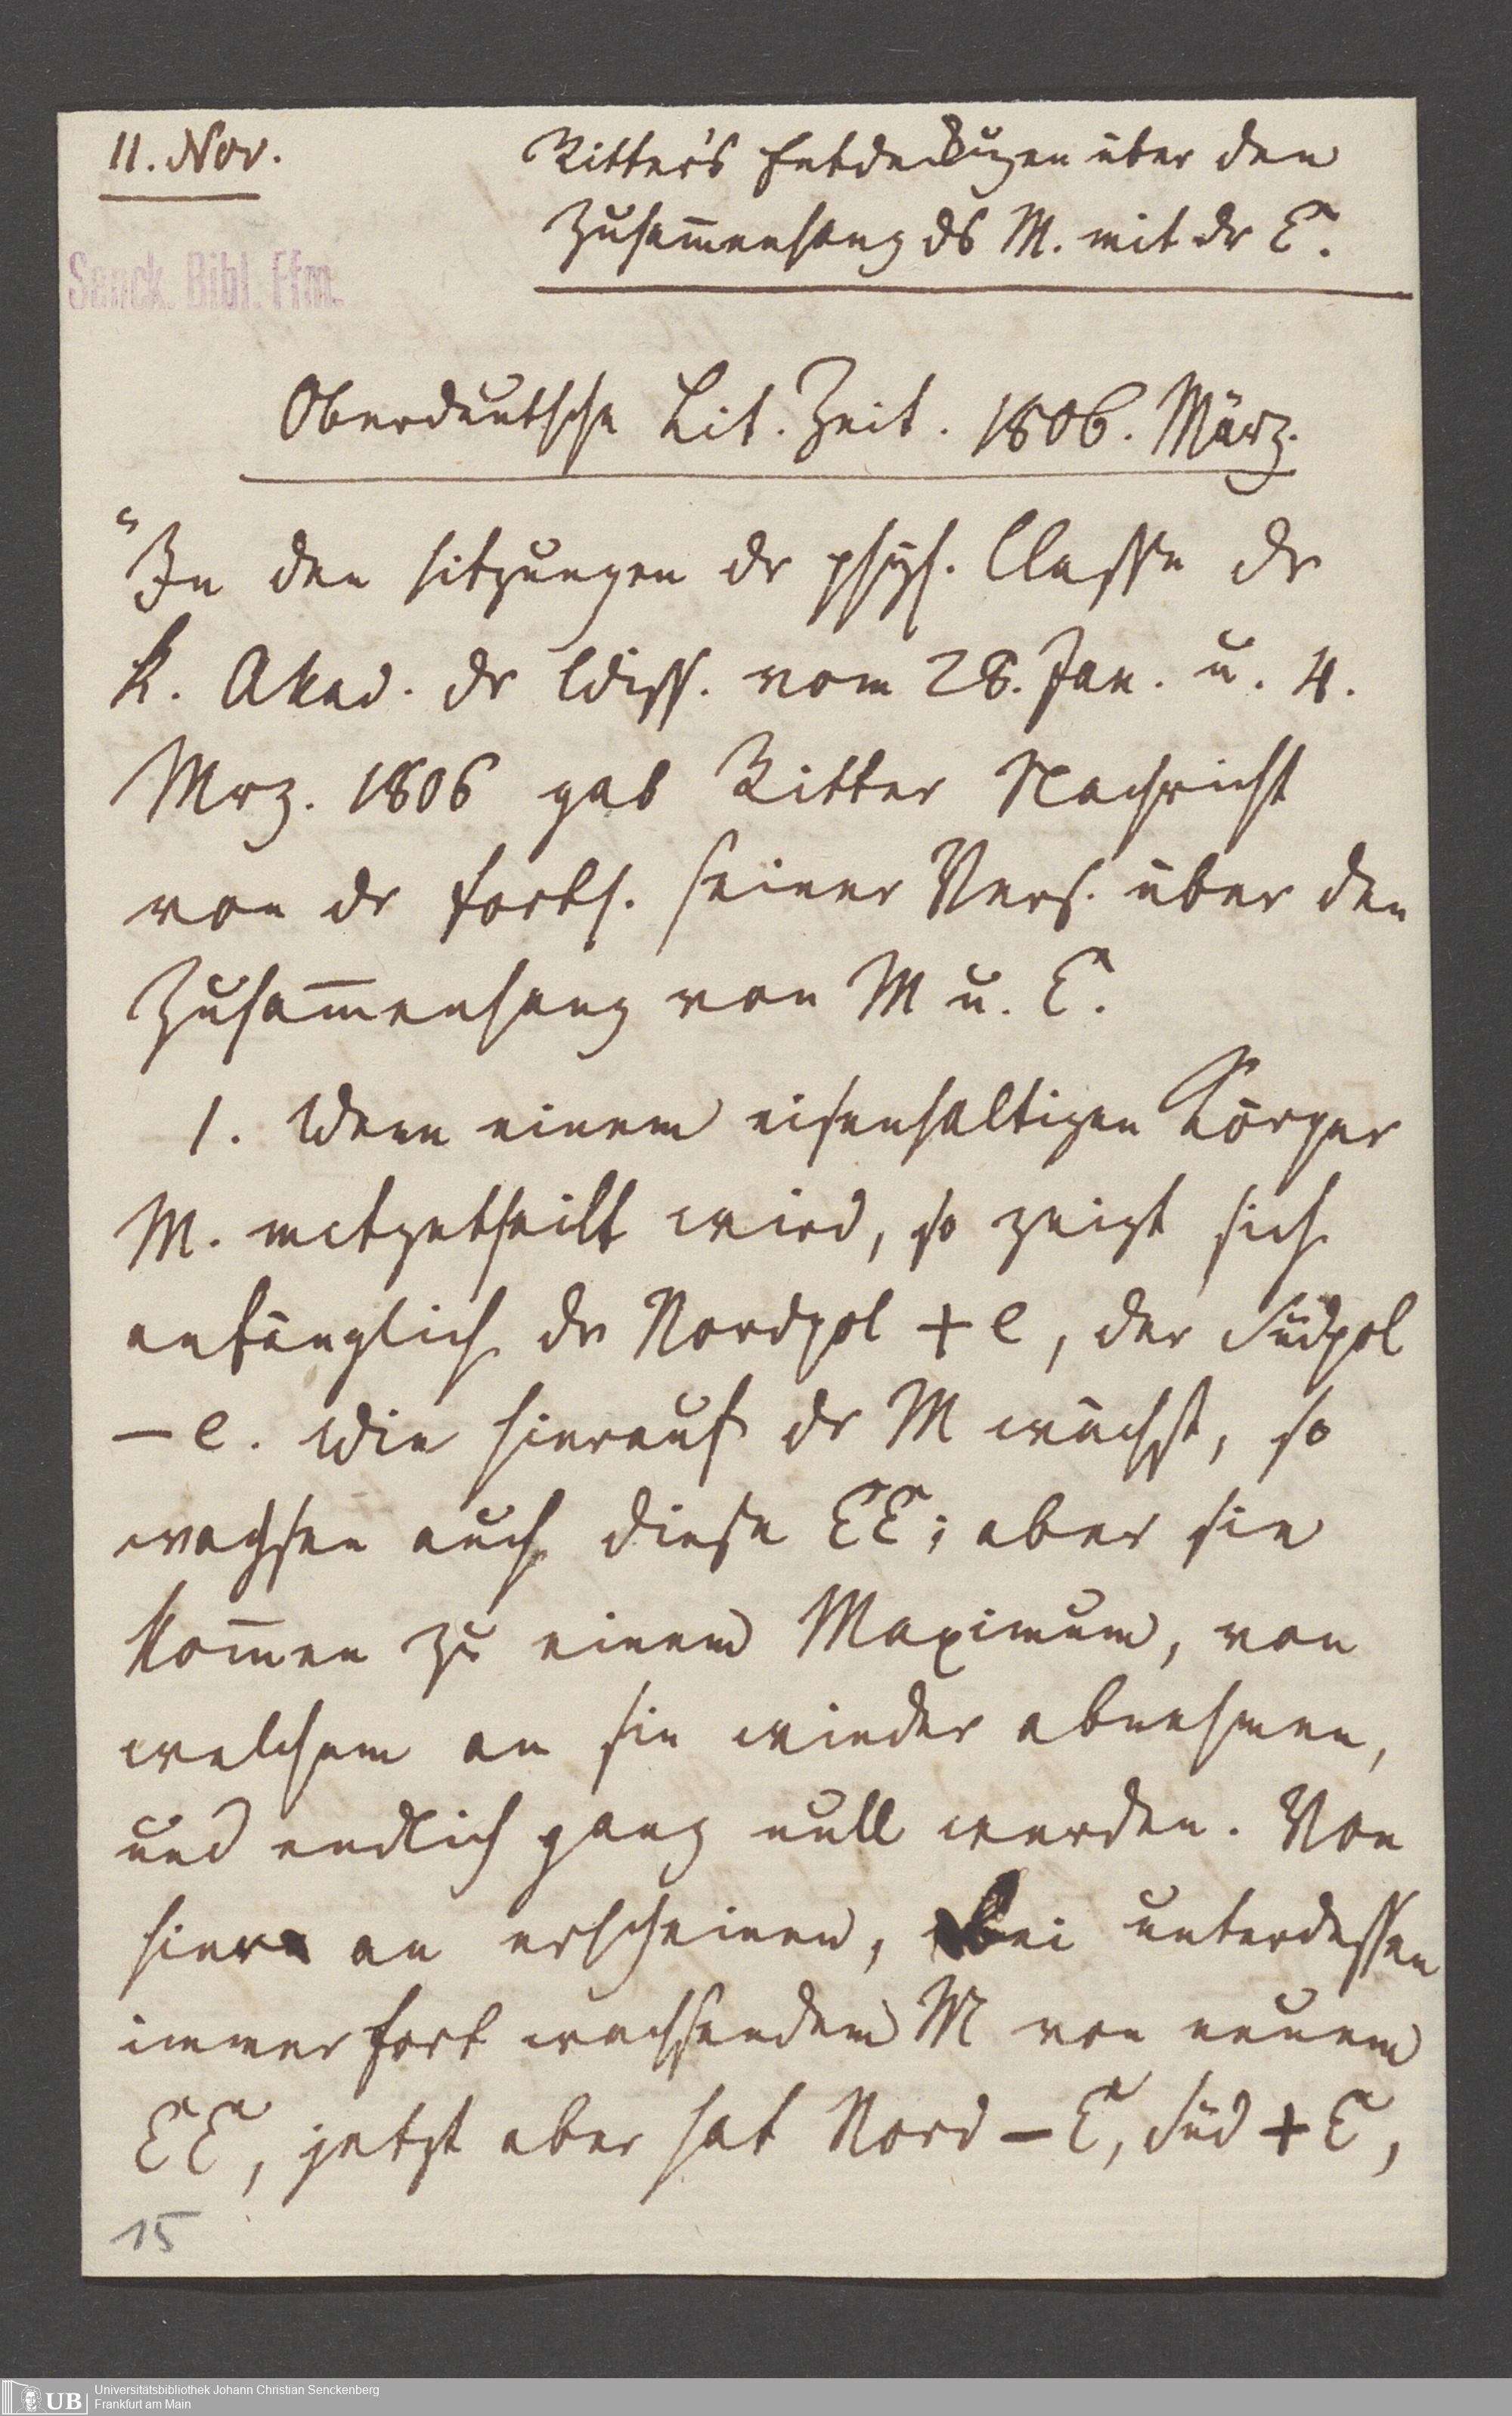 11. Nov.
Ritter's Entdeckugen über den
Zusam̄enhang ds M. mit dr E.
Senck. Bibl. Ffm.
Oberdeutsche Lit. Zeit. 1806. März.
"In den Sitzungen dr phys. Classe dr
k. Akad. dr Wiss. vom 28. Jan. u. 4.
Mrz. 1806 gab Ritter Nachricht
von dr Forts. seiner Vers. über den
Zusam̄enhang von M u. E.
1. Wenn einem eisenhaltigen Körper
M. mitgetheilt wird, so zeigt sich
anfänglich dr Nordpol + e, der Südpol
– e. Wie hierauf dr M wächst, so
wachsen auch diese EE; aber sie
kom̄en zu einem Maximum, von
welchem an sie wieder abnehmen,
und endlich ganz null werden. Von
hier an erscheinen, bei unterdessen
immer fort wachsendem M von neuem
EE, jetzt aber hat Nord – E, Süd + E,
15
UB
Universitätsbibliothek Johann Christian Senckenberg
Frankfurt am Main